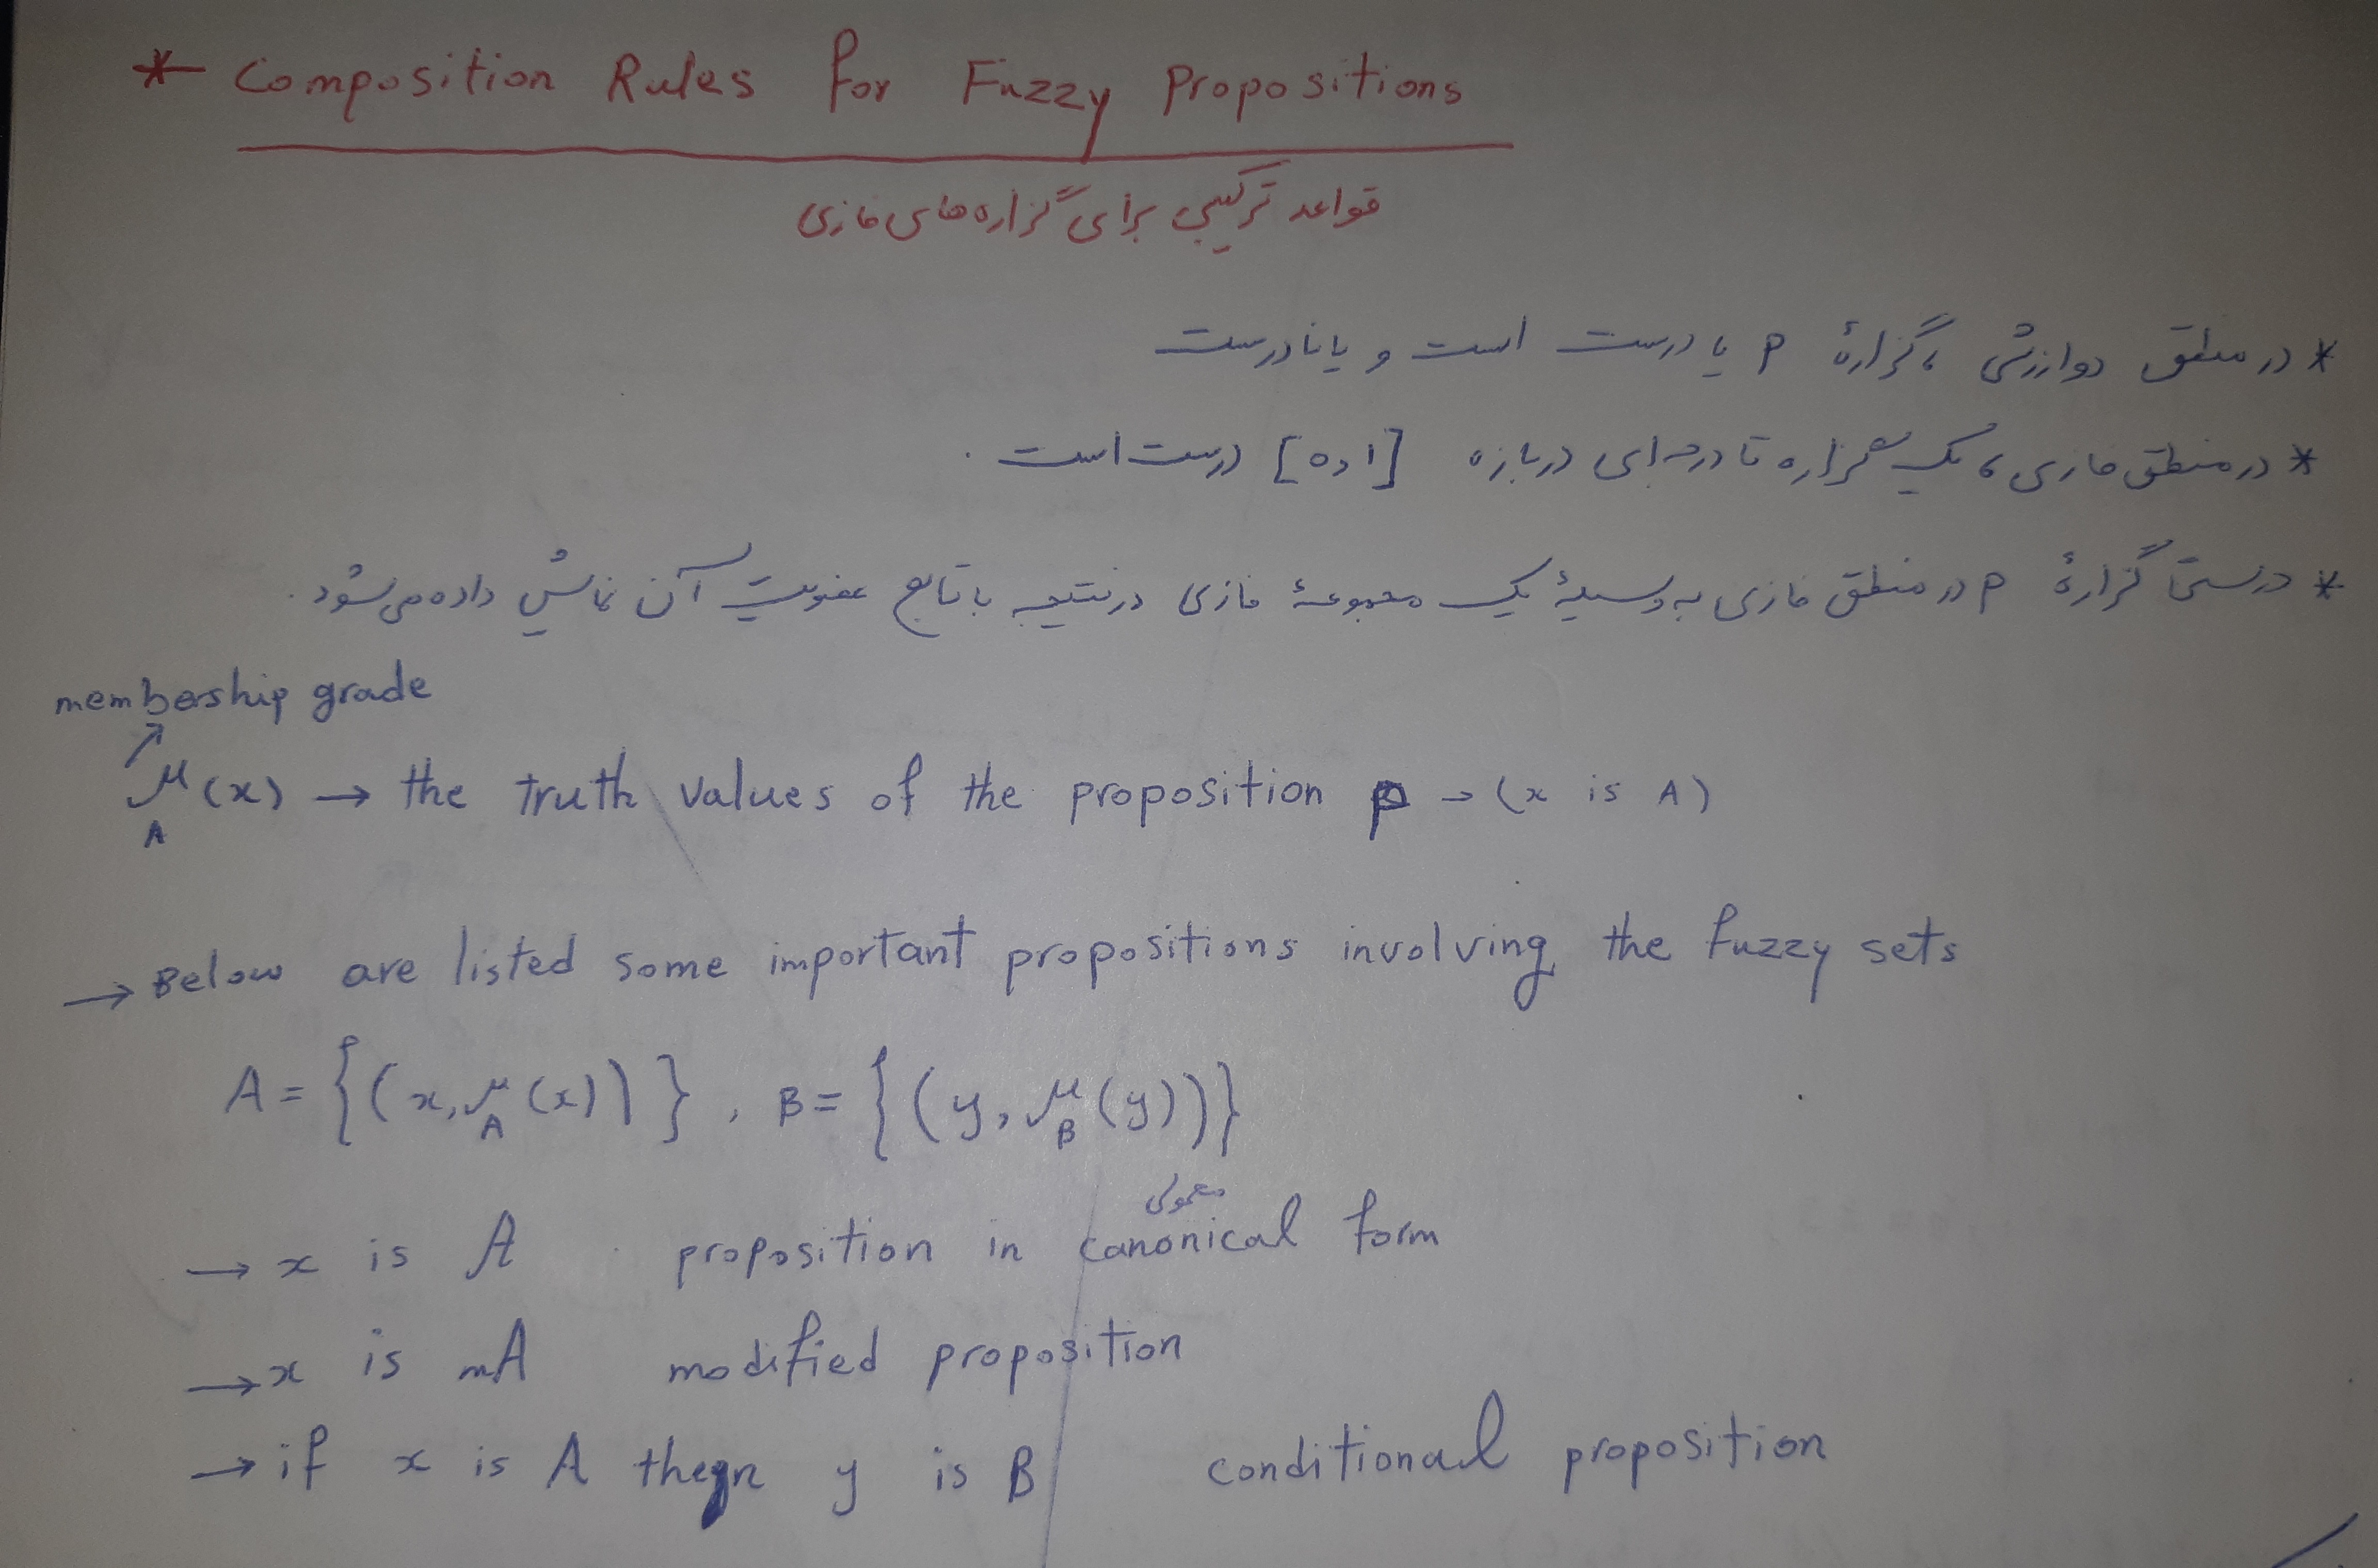 * Composition Rules for Fuzzy Propositions
قواعد ترکیبی برای گزاره‌های فازی
* در منطق دوارزشی گزارهٔ P یا درست است و یا نادرست
* در منطق فازی یک گزاره تا درجه‌ای در بازه [0,1] درست است .
* درستی گزارهٔ P در منطق فازی به وسیلهٔ یک مجموعهٔ فازی در نتیجه با تابع عضویت آن نمایش داده می‌شود .
membership grade
μ_A(x) → the truth values of the proposition P → (x is A)
→ Below are listed some important propositions involving the fuzzy sets
A = {(x, μ_A(x))} , B = {(y, μ_B(y))}
→ x is A proposition in canonical form
معمولی
→ x is mA modified proposition
→ if x is A then y is B conditional proposition